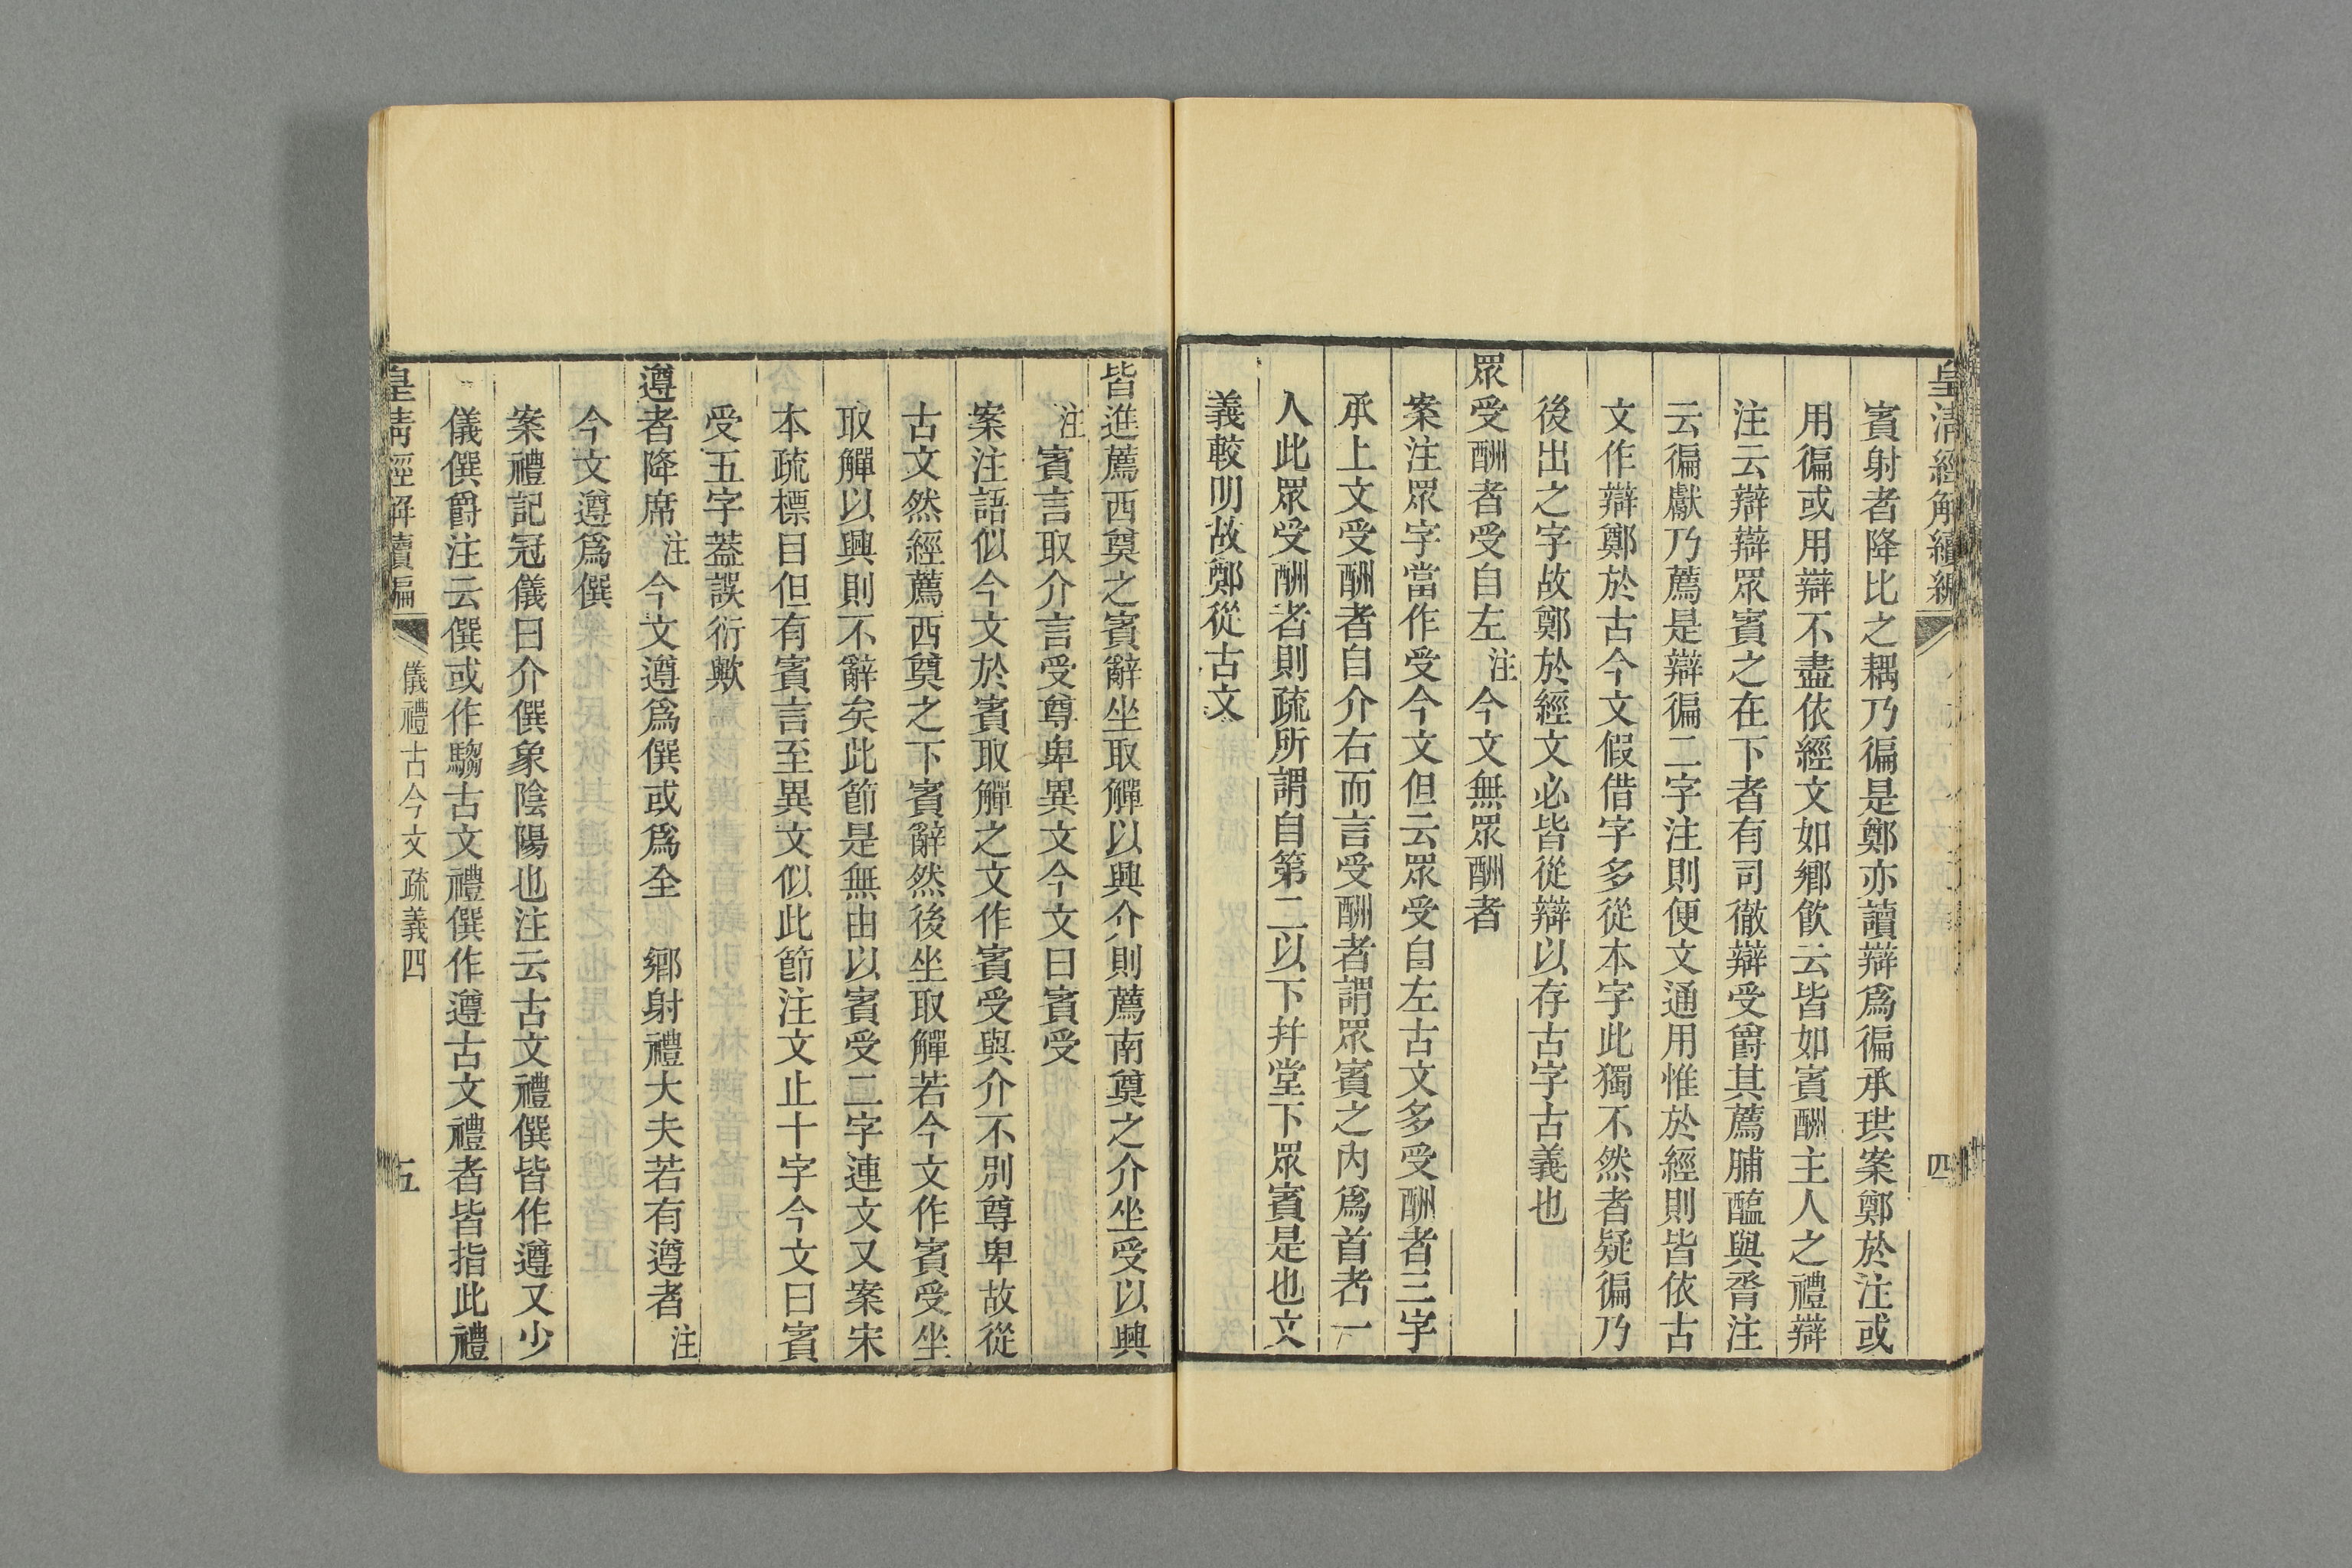 皇清經解續編
四
賓射者降比之耦乃徧是鄭亦讀辯爲徧承珙案鄭於注或
用徧或用辯不盡依經文如鄉飮云皆如賓酬主人之禮辯
注云辯辯眾賓之在下者有司徹辯受爵其薦脯醢與脀注
云徧獻乃薦是辯徧二字注則便文通用惟於經則皆依古
文作辯鄭於古今文假借字多從本字此獨不然者疑徧乃
後出之字故鄭於經文必皆從辯以存古字古義也
眾受酬者受自左注今文無眾酬者
案注眾字當作受今文但云眾受自左古文多受酬者三字
承上文受酬者自介右而言受酬者謂眾賓之內爲首者一
人此眾受酬者則疏所謂自第二以下幷堂下眾賓是也文
義較明故鄭從古文
皆進薦西奠之賓辭坐取觶以興介則薦南奠之介坐受以興
注賓言取介言受尊卑異文今文曰賓受
案注語似今文於賓取觶之文作賓受與介不別尊卑故從
古文然經薦西奠之下賓辭然後坐取觶若今文作賓受坐
取觶以興則不辭矣此節是無由以賓受二字連文又案宋
本疏標目但有賓言至異文似此節注文止十字今文曰賓
受五字葢誤衍歟
遵者降席注今文遵爲僎或爲全　鄉射禮大夫若有遵者注
今文遵爲僎
案禮記冠儀曰介僎象陰陽也注云古文禮僎皆作遵又少
儀僎爵注云僎或作騶古文禮僎作遵古文禮者皆指此禮
皇清經解續編
儀禮古今文疏義四
五